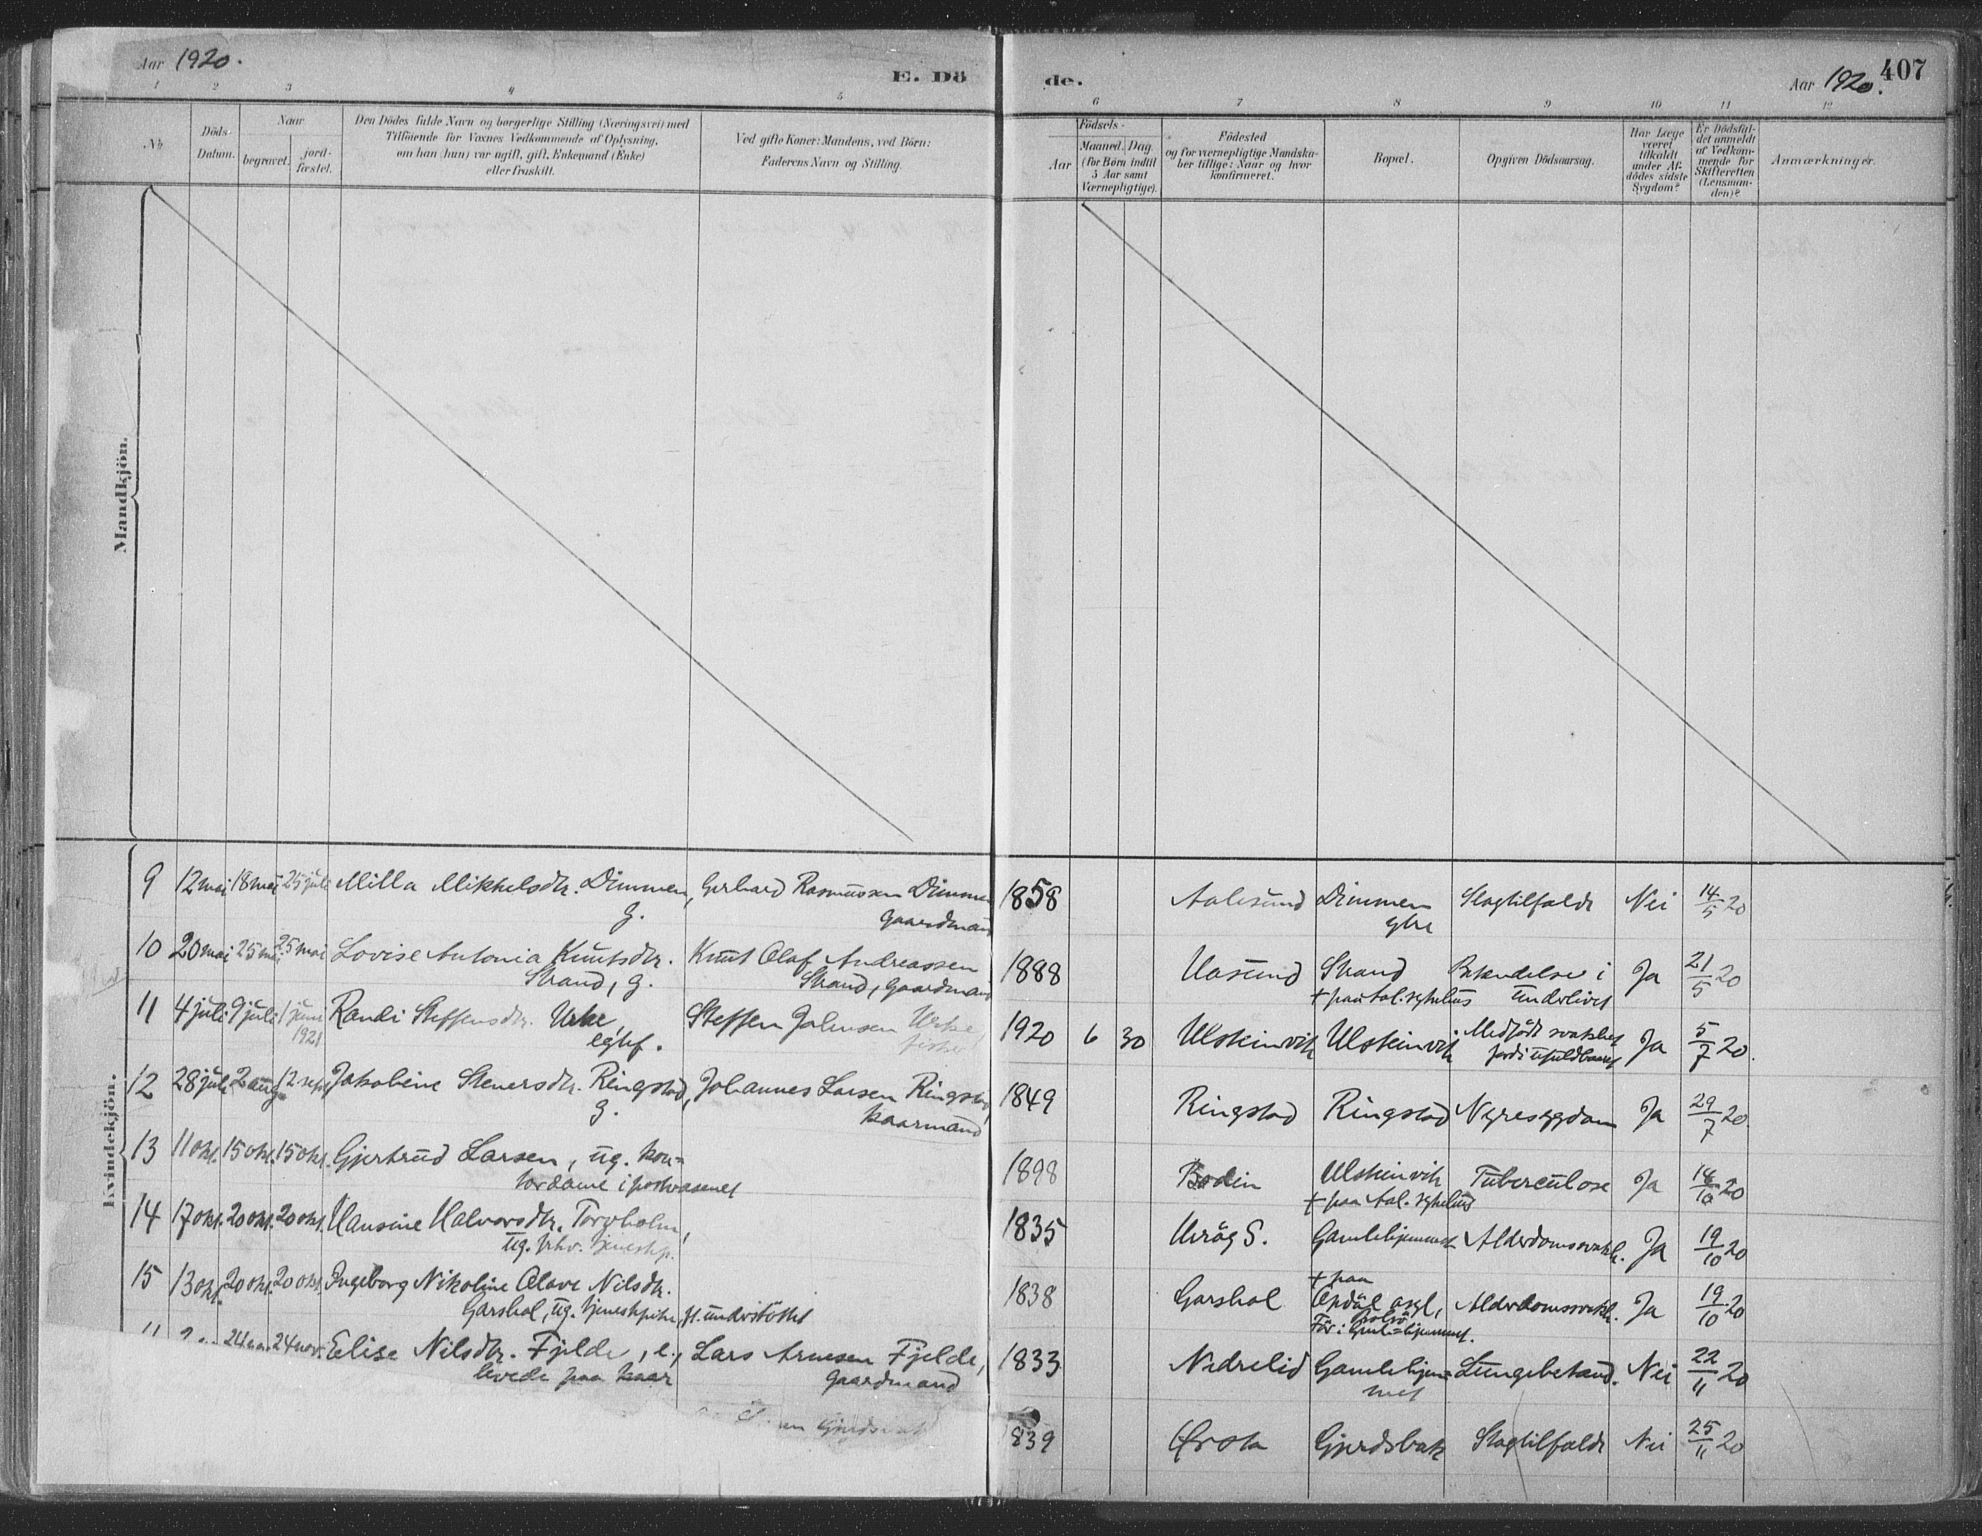 Aar 1920.
E. Dö
de.
Aar 1920.
407
1 2 3 4 5
6 7 8 9 10 11 12
No
Döds-
Datum.
Naar
begravet.
jord-
fæstet.
Den Dödes fulde Navn og borgerlige Stilling (Næringsvei) med
Tilföiende for Voxnes Vedkommende af Oplysning,
om han (hun) var ugift, gift, Enkemand (Enke)
eller fraskilt.
Ved gifte Koner: Mandens, ved Börn:
Faderens Navn og Stilling.
Födsels-
Aar
Maaned. Dag.
(for Börn indtil
5 Aar samt
Værnepligtige).
Födested
og for værnepligtige Mandska-
ber tillige: Naar og hvor
konfirmeret.
Bopæl.
Opgiven Dödsaarsag.
Har Læge
været
tilkaldt
under Af-
dödes sidste
Sygdom?
Er Dödsfal-
det anmeldt
af Vedkom-
mende for
Skifteretten
(Lensman-
den)?
Anmærkninger.
Mandkjön.
Kvindekjön.
9 12 mai 18 mai 25 juli Milla Mikkelsdtr. Dimmen, Gerhard Rasmussen Dimmen 1858 Aalesund Dimmen Slagtilfælde Nei 14/5 20
g. gaardmand ytre
10 20 mai 25 mai 25 mai Lovise Antonia Knutsdtr. Knut Olaf Andreassen 1888 Vasund Strand Betændelse i Ja 21/5 20
Strand, g. Strand, gaardmand + paa Aal. sykehus underlivet
11 4 juli 9 juli 1 juni Randi Steffensdtr. Urke, Steffen Johnsen Urke 1920 6 30 Ulsteinvik Ulsteinvik Medfödt svakhet Ja 5/7 20.
1921 egtef. fisker
12 28 juli 2 aug 12 sept Jakobine Steversdtr. Ringstad, Johannes Larsen Ringstad, 1849 Ringstad Ringstad Nyresygdom Ja 29/7 20.
g. kaarmand
13 11 okt. 15 okt. 15 okt. Gjertrud Larsen, ug. kon= 1898 Bodin Ulsteinvik Tuberculose Ja 14/10 20
tordame i postvæsenet + paa Aal. sykehus
14 17 okt. 20 okt. 20 okt. Hansine Halvorsdtr. Torvholm, 1835 Gamlehjemmet Alderdomssvakh. Ja 19/10 20
ug. fhv. tjenestep.
15 13 okt. 20 okt. 20 okt. Ingeborg Nikoline Olave Nilsdtr. 1838 Garshol + paa
Garshol, ug. tjenestepike, ft. understöttet Opdöl asyl, Alderdomssvakh. Ja 19/10 20
Før i Gamlehjemmet.
24 nov. 24 nov. Elise Nilsdtr. Fjelde, e., Lars Arnesen Fjelde, 1833 Nedrelid Gamlehjem= Lungebetænd. Nei 22/11 20
levede paa kaar gaardmand met
1839 Ørsta Gjerdsbak Slagtilfælde Nei 25/11 20